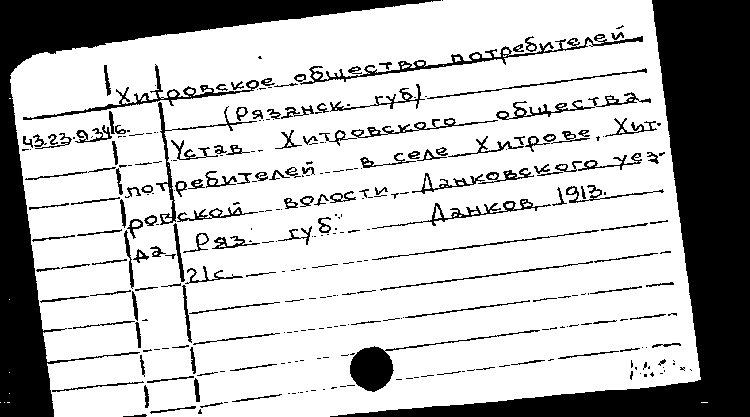 Хитровское общество потребителей
(Рязанск. губ)
43.23.9.346.
Устав Хитровского общества
потребителей в селе Хитрове, Хит-
ровской волости, Данковского уез-
да, Ряз. губ. Данков, 1913.
21с.